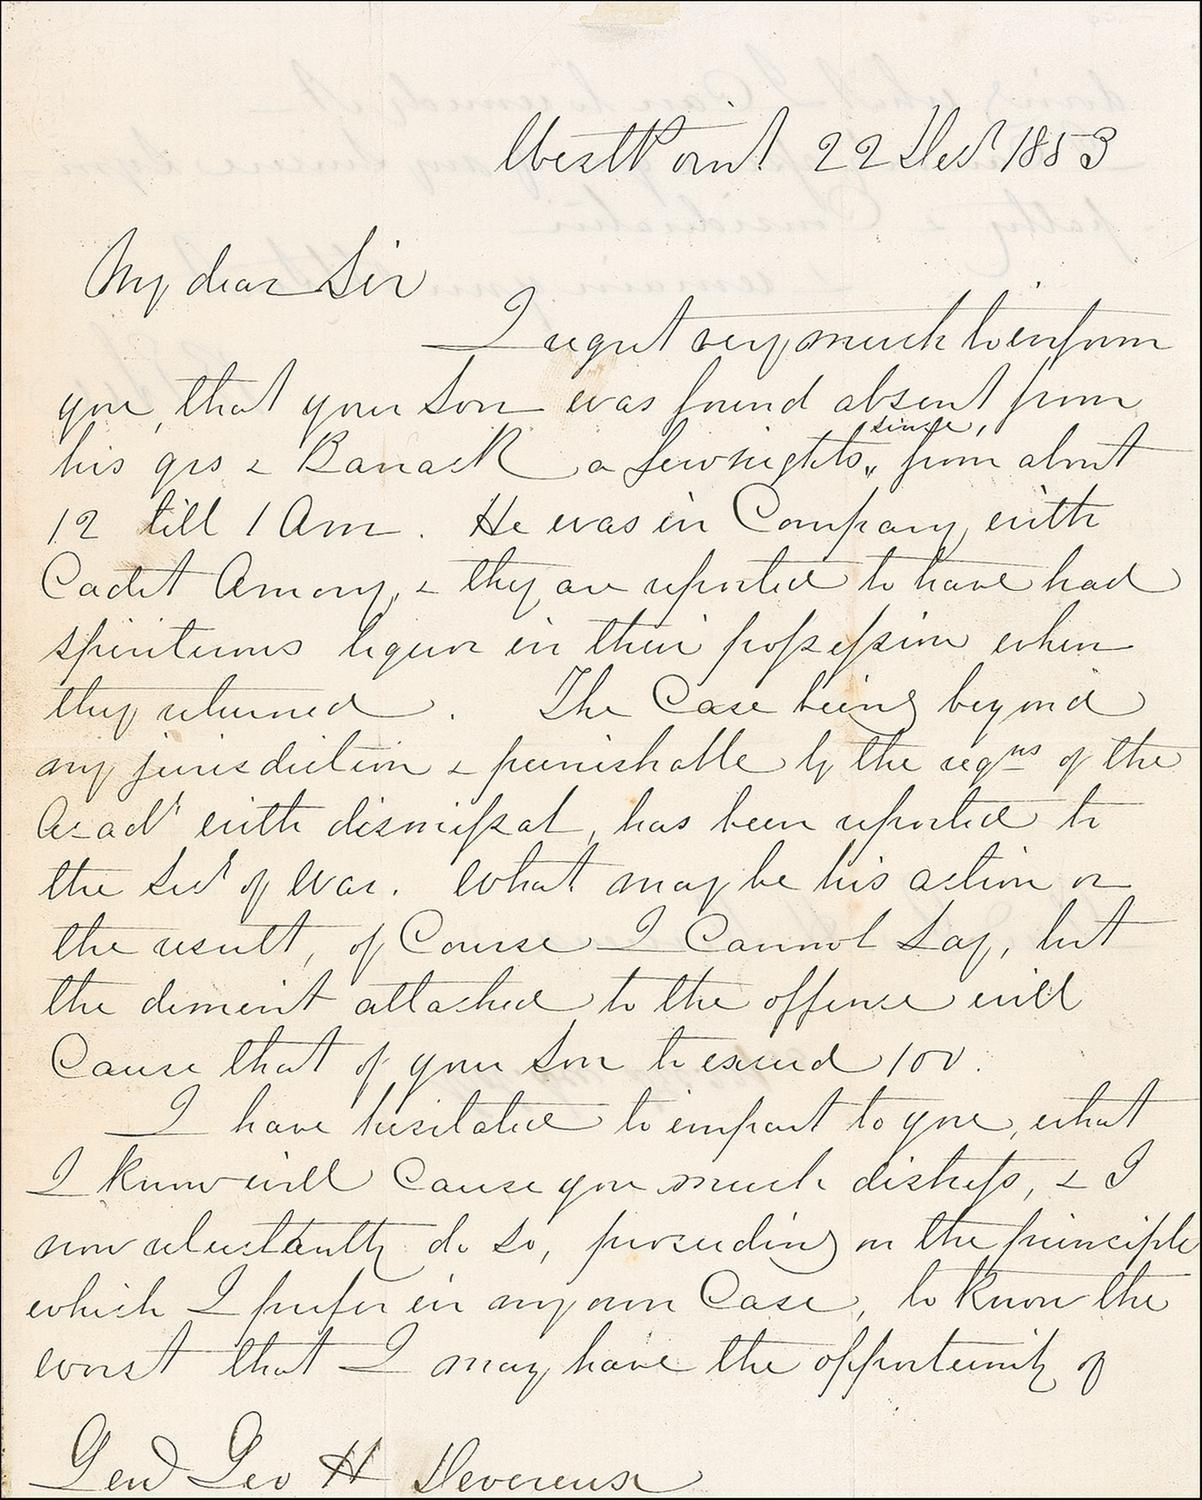 West Point 22 Dec' 1853
My dear Sir
I regret very much to inform
you, that your Son was found absent from
his qrs & Barrack a few nights since, from about
12 till 1 Am. He was in Company with
Cadet Amory, & they are reported to have had
spirituous liquor in their possession when
they returned. The Case being beyond
my jurisdiction & punishable by the regns of the
Acady with dismissal, has been reported to
the Secy of War. What may be his action or
the result, of Course I Cannot Say, but
the demerit attached to the offense will
Cause that of your Son to exceed 100.
I have hesitated to impart to you, what
I know will Cause you much distress, & I
now reluctantly do So, proceeding on the principle
which I prefer in my own Case, to know the
worst that I may have the opportunity of
Genl Geo H Devereux